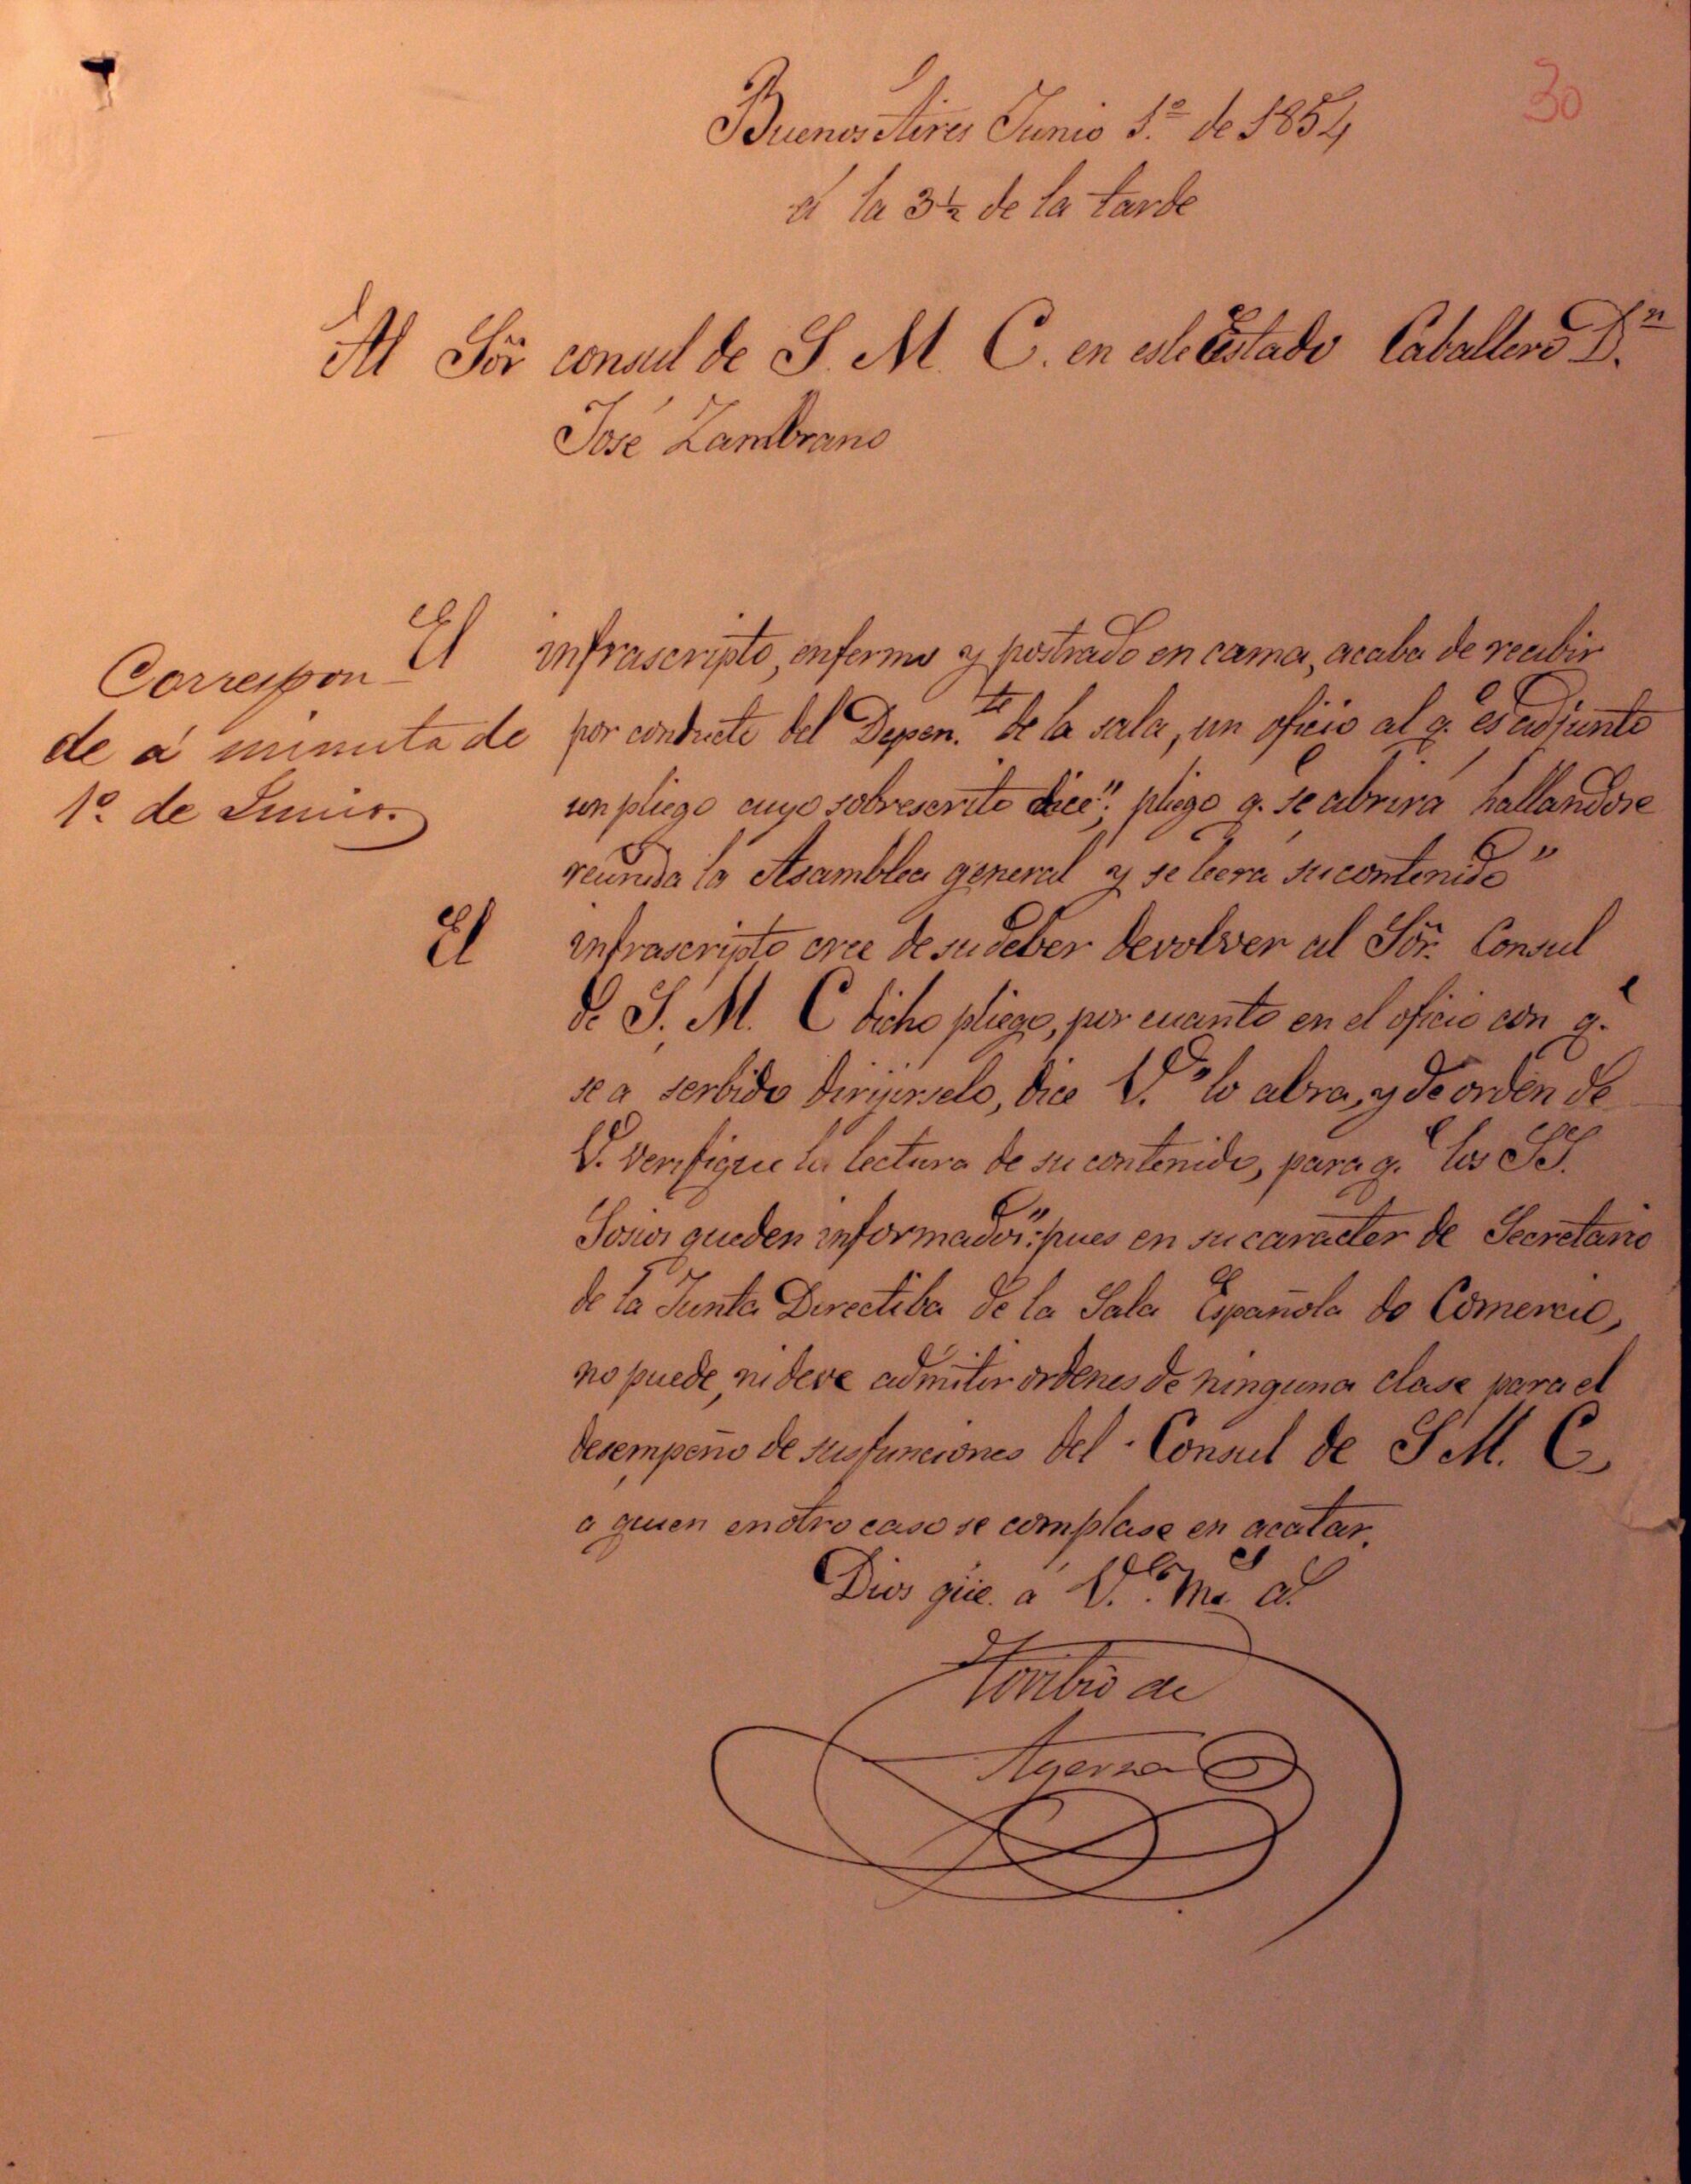 30
Buenos Aires Junio 1.º de 1854
á la 3½ de la tarde
Al Sõr consul de S. M. C. en este Estado Caballero D.ⁿ
José Zambrano
Correspon
de á minuta de
1º de Junio.
El infrascripto, enfermo y postrado en cama, acaba de recibir
por conducto del Depen.te de la sala, un oficio al q.e es adjunto
un pliego cuyo sobrescrito dice": pliego q.e se abrirá hallandose
reunida la Asamblea general y se leera su contenido"
El infrascripto cree de su deber devolver al Sõr. Consul
de S. M. C dicho pliego, por cuanto en el oficio con q.e
se a serbido dirijirselo, dice V. "lo abra, y de orden de
V. verifique la lectura de su contenido, para q.e los SS.
Sosios queden informados": pues en su caracter de Secretario
de la Junta Directiba de la Sala Española de Comercio,
no puede, ni deve admitir ordenes de ninguna clase para el
desempeño de sus funciones del Consul de S M. C,
a quien en otro caso se complase en acatar.
Dios güe. á V. m.s a.s
Toribio de
Ayerza